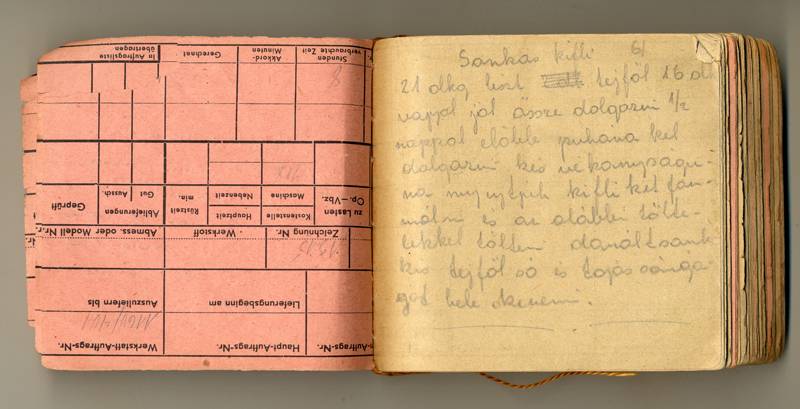 In Auftragsliste übertragen
Gerechnet
Akkord-Minuten
Stunden verbrauchte Zeit
Geprüft
Ablieferungen
Gut Aussch.
Rüstzeit
min.
Hauptzeit
Nebenzeit
Kostenstelle
Maschine
zu Lasten
Op.-Vbz.
Abmess. oder Modell Nr.
Werkstoff
Zeichnung Nr.
Auszuliefern bis
Lieferungsbeginn am
Werkstatt-Auftrags-Nr.
Haupt-Auftrags-Nr.
-Auftrags-Nr.
Sonkás kifli 6/
21 dkg liszt tejföl 16 dk
vajjal jól össze dolgozni 1/2
nappal előbb puhára kel
dolgozni kés vékonyságu-
ra nyujtjuk kifliket for-
málni és az alábbi tölte-
lekkel tölteni darált sonk
kis tejföl só és tojás sárgá-
ját bele kenni.